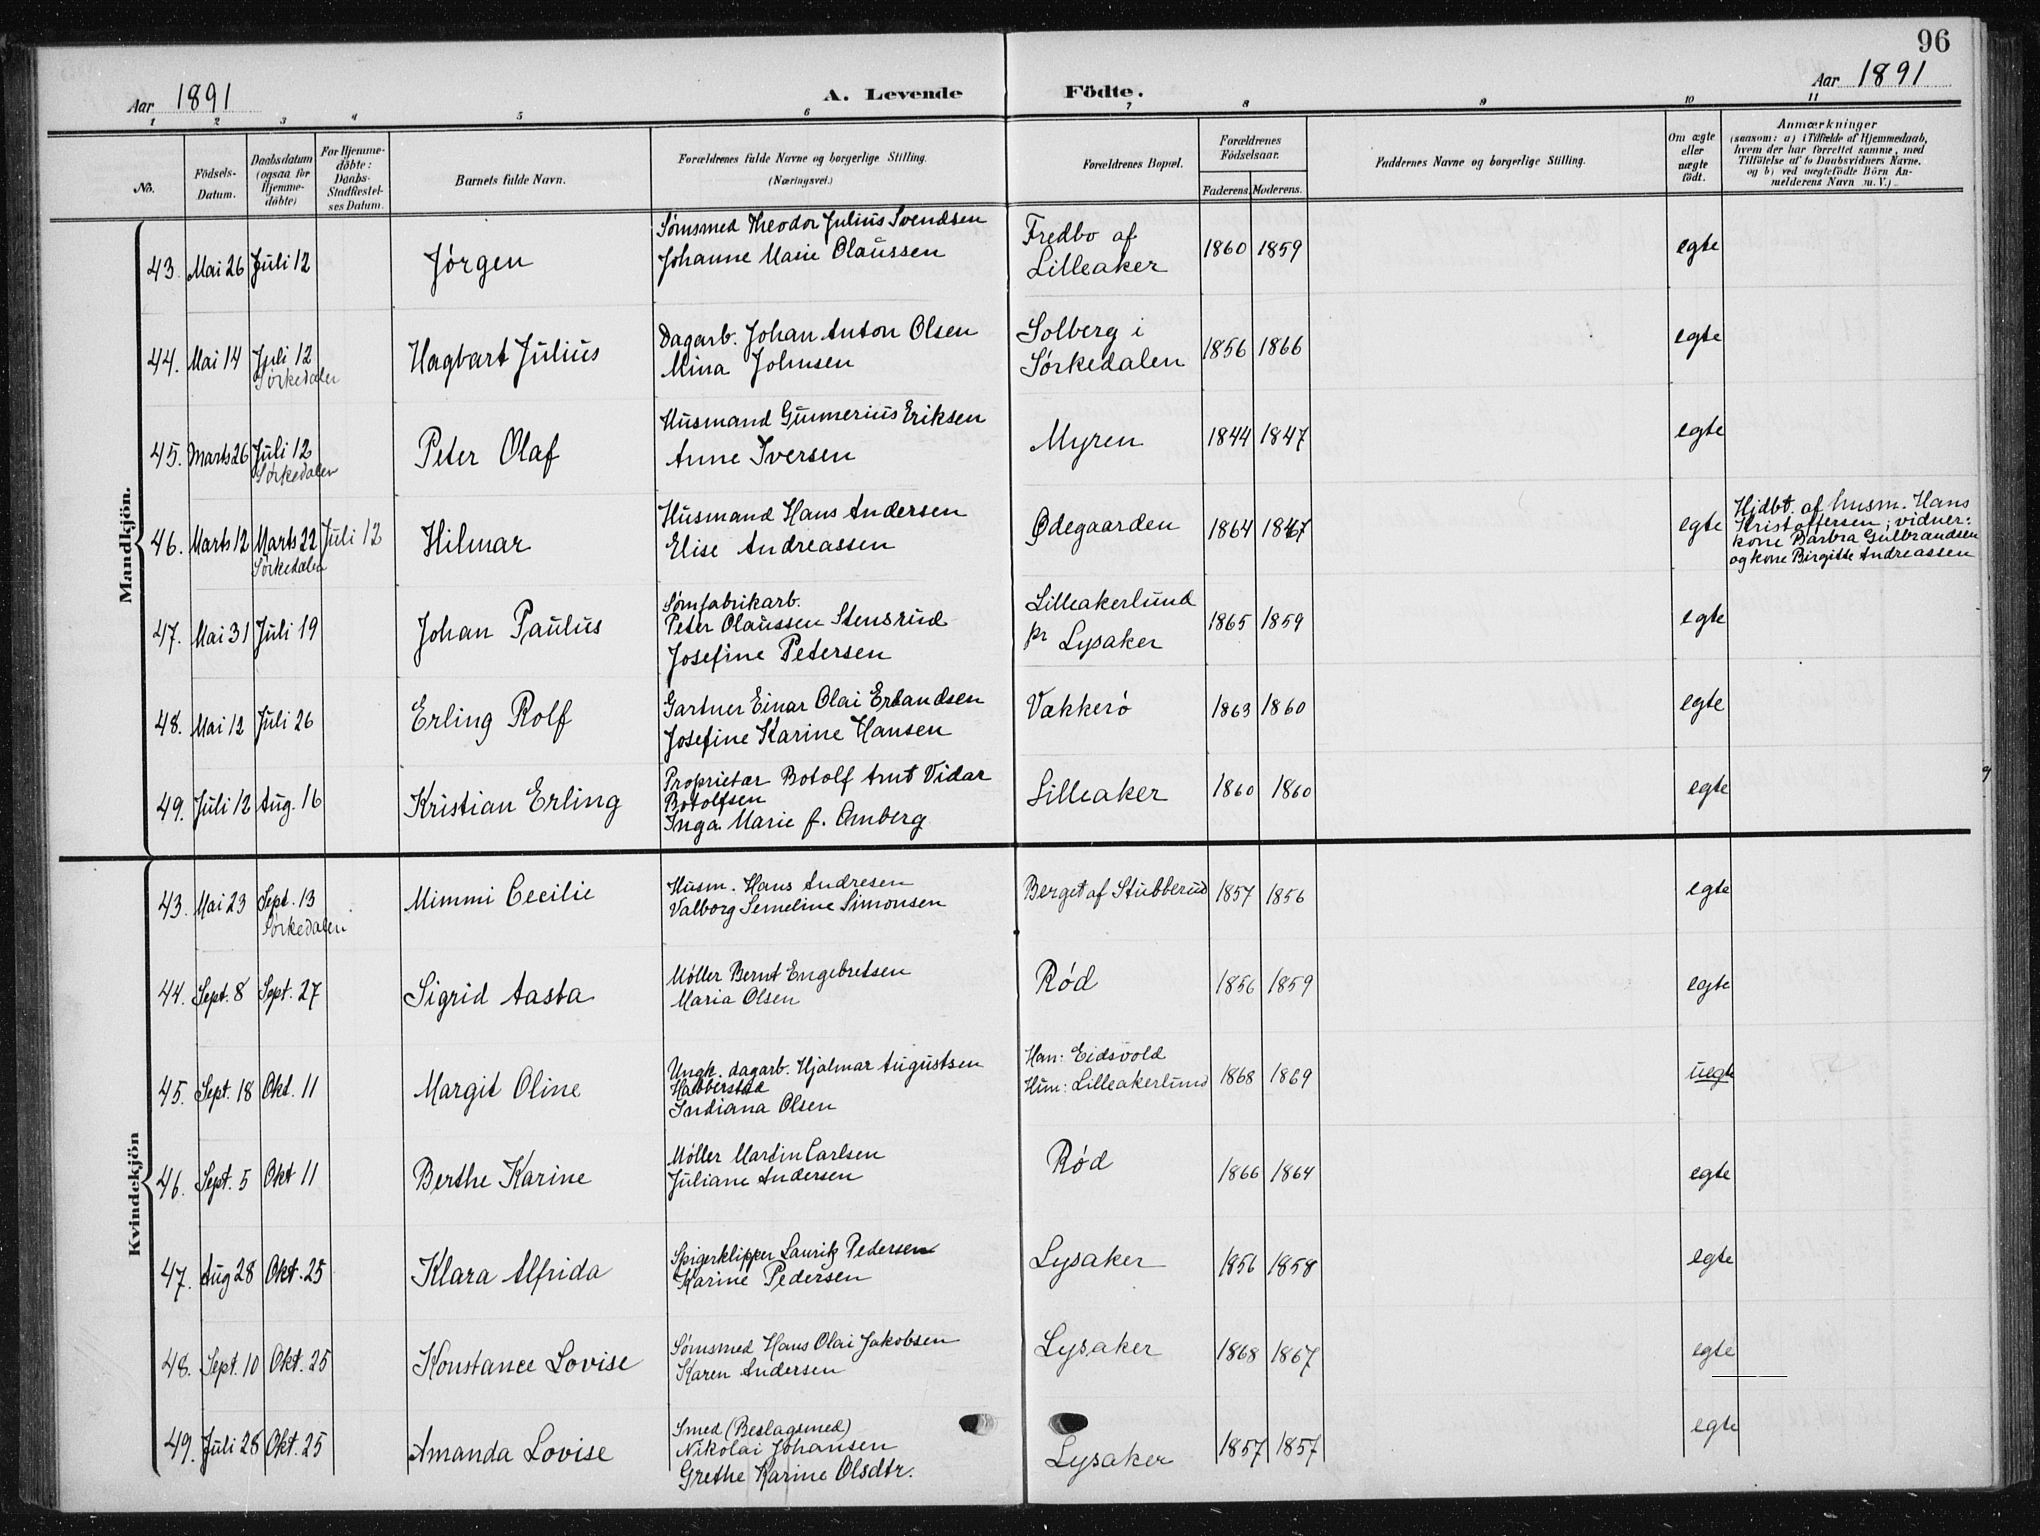 96
Aar 1891
A. Levende Födte.
Aar 1891
1 2 3 4 5 6 7 8 9 10 11
No.
Födsels-
Datum.
Daabsdatum
(ogsaa for
Hjemme-
döbte)
For Hjemme-
döbte:
Daabs-
Stadfæstel-
ses Datum.
Barnets fulde Navn.
Forældrenes fulde Navne og borgerlige Stilling.
(Næringsvei.)
Forældrenes Bopæl.
Forældrenes
Födselsaar.
Faderens. Moderens.
Faddernes Navne og borgerlige Stilling.
Om ægte
eller
uægte
födt.
Anmærkninger
(saasom: a) i Tilfælde af Hjemmedaab,
hvem der har forrettet samme, med
Tilföielse af to Daabsvidners Navne,
og b) ved uægtefödte Börn An-
melderens Navn m. V.)
Mandkjön.
43. Mai 26 Juli 12 Jørgen
Sømsmed Theodor Julius Svendsen
Johanne Marie Olaussen
Fredbo af
Lilleaker
1860 1859 egte
44. Mai 14 Juli 12
Sørkedalen
Hagbart Julius
Dagarb. Johan Anton Olsen
Mina Johnsen
Solberg i
Sørkedalen
1856 1866 egte
45. Marts 26 Juli 12
Sørkedalen
Peter Olaf
Husmand Gunnerius Eriksen
Anne Iversen
Myren
1844 1847 egte
46. Marts 12 Marts 22 Juli 12
Sørkedalen
Hilmar
Husmand Hans Andersen
Elise Andreassen
Ødegaarden
1864 1867 egte
Hjdbt. af husm. Hans
Kristoffersen; vidner:
kone Barbra Gulbrandsen
og kone Birgitte Andreassen
47. Mai 31 Juli 19 Johan Paulus
Sømfabrikarb.
Peter Olaussen Stensrud
Josefine Petersen
Lilleakerlund
pr Lysaker
1865 1859 egte
48. Mai 12 Juli 26 Erling Rolf
Gartner Einar Olai Erlandsen
Josefine Karine Hansen
Vækkerø
1863 1860 egte
49. Juli 12 Aug. 16 Kristian Erling
Proprietær Botolf Arnt Vidar
Botolfsen
Inga Marie f. Omberg
Lilleaker
1860 1860 egte
Kvindekjön
43. Mai 23 Sept. 13
Sørkedalen
Mimmi Cecilie
Husm. Hans Andresen
Valborg Semeline Simonsen
Berget af Stubberud
1857 1856 egte
44. Sept. 8 Sept. 27 Sigrid Aasta
Møller Bernt Engebretsen
Maria Olsen
Rød
1856 1859 egte
45. Sept. 18 Okt. 11 Margit Oline
Ungk. dagarb. Hjalmar Augustsen
Habberstad
Indiana Olsen
Han: Eidsvold
Hun: Lilleakerlund
1868 1869 uegte
46. Sept. 5 Okt 11 Berthe Karine
Møller Martin Carlsen
Juliane Andersen
Rød
1866 1864 egte
47. Aug 28 Okt. 25 Klara Alfrida
Spigerklipper Laurik Pedersen
Karine Pedersen
Lysaker
1856 1858 egte
48. Sept. 10 Okt. 25 Konstance Lovise
Sømsmed Hans Olai Jakobsen
Karen Andersen
Lysaker
1868 1867 egte
49. Juli 28 Okt. 25 Amanda Lovise
Smed (Beslagsmed)
Nikolai Johansen
Grethe Karine Olsdtr.
Lysaker
1857 1857 egte